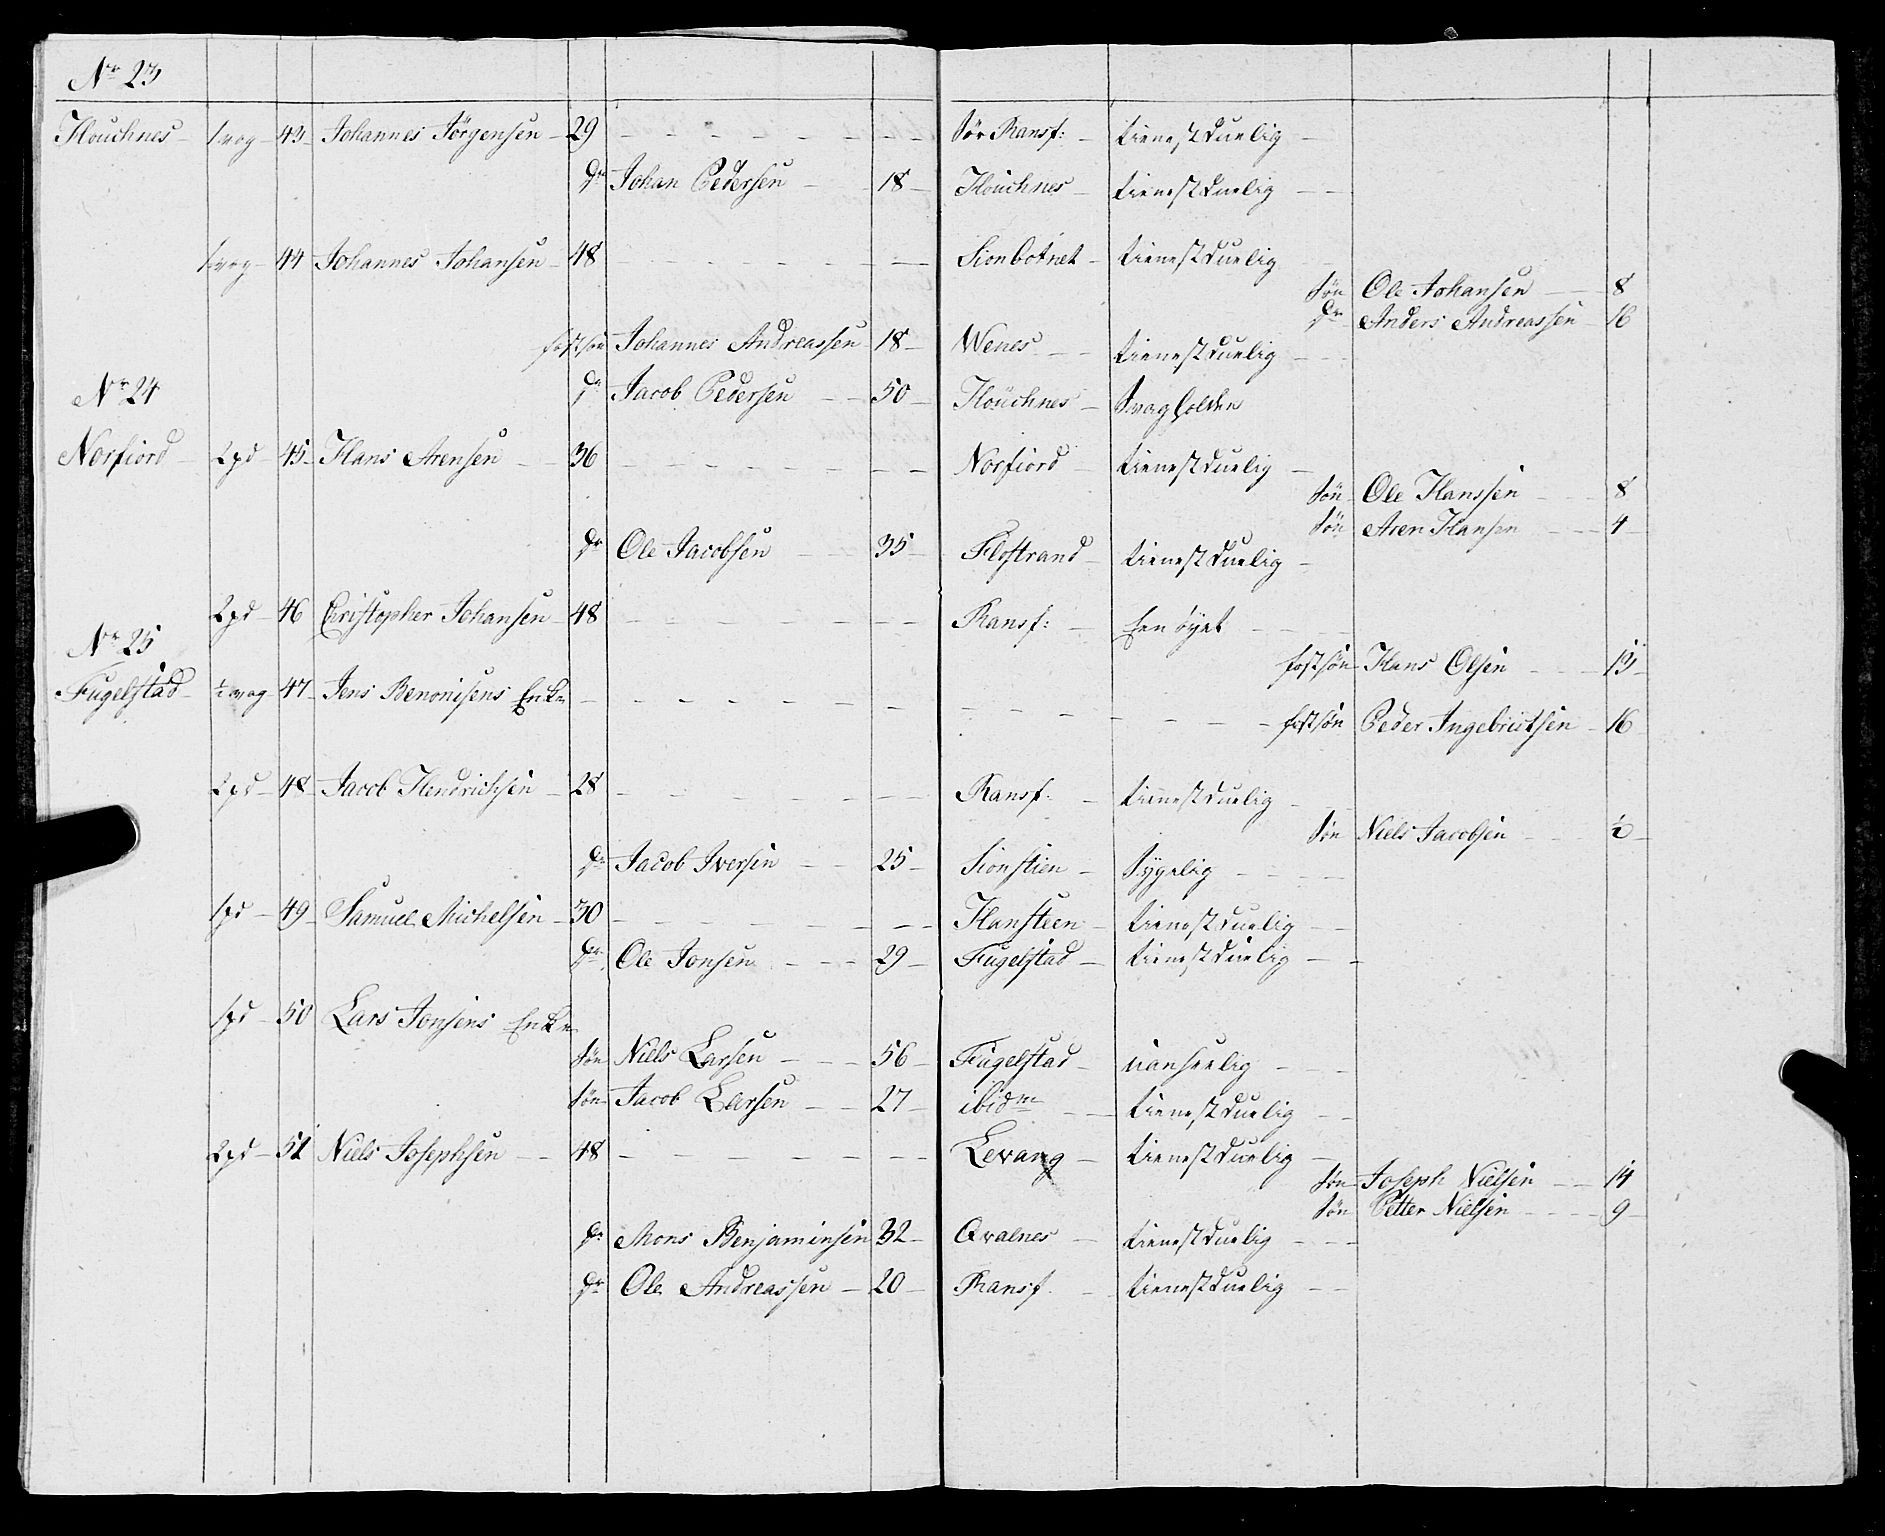 Nr 23
Houchnes - 1 vog - 43 - Johannes Jørgensen - 29 - - - - - - - - Sør Ransf: - tienestduelig -
Dr Johan Pedersen - 18 - Houchnes - tienestduelig - -
1 vog - 44 Johannes Johansen - 48 - - - - - - - Sionbotnet - tienestduelig
Søn Ole Johansen - 8
Dr Anders Andreassen - 16
fostsøn Johannes Andreassen 18 - Wenes - - tienestduelig - - -
Nr 24
Dr Jacob Pedersen - - 50 - Houchnes - Svagholden
Norfiord - 2 pd - 45 - Hans Arensen - 36 - - - - - - - Norfiord - tienestduelig -
Søn Ole Hanssen - - 8
Søn Aren Hansen - - - 4
Dr Ole Jacobsen - - 35 - Flostrand - tienestduelig -
2 pd - 46 Christopher Johansen - 48 - - - - - - - Ransf: - Een øyet - - -
Nr 25
fostsøn Hans Olsen - - - 13
Fugelstad - ½ vog - 47 - Jens Benonisens Enke - - - - - - - - - -
fostsøn Peder Ingebrictsen - 16
2 pd - 48 - Jacob Hendrichsen - 28 - - - - - - - Ransf. - tienestduelig -
Søn Niels Jacobsen - - ½ -
Dr Jacob Iversen - - 25 - Sionstien - Sygelig - - - -
1 pd - 49 - Samuel Michelsen - 30 - - - - - - - Hansteen - tienestduelig - -
Dr Ole Jonsen - - - 29 - Fugelstad - tienestduelig - -
1 pd - 50 Lars Jonsens Enke
Søn Niels Larsen - - - 56 - Fugelstad - uanseelig - - -
Søn Jacob Larsen - - 27 - ibidm - - tienestduelig - -
2 pd - 51 Niels Josephsen - - 48 - - - - - - - Levang - tienestduelig -
Søn Joseph Nielsen - - 14
Søn Petter Nielsen - - - - 9 -
Dr Mons Benjaminsen 32 - Qvalnes - tienestduelig - - -
Dr Ole Andreassen - 20 - Ransf. - tienestduelig - -